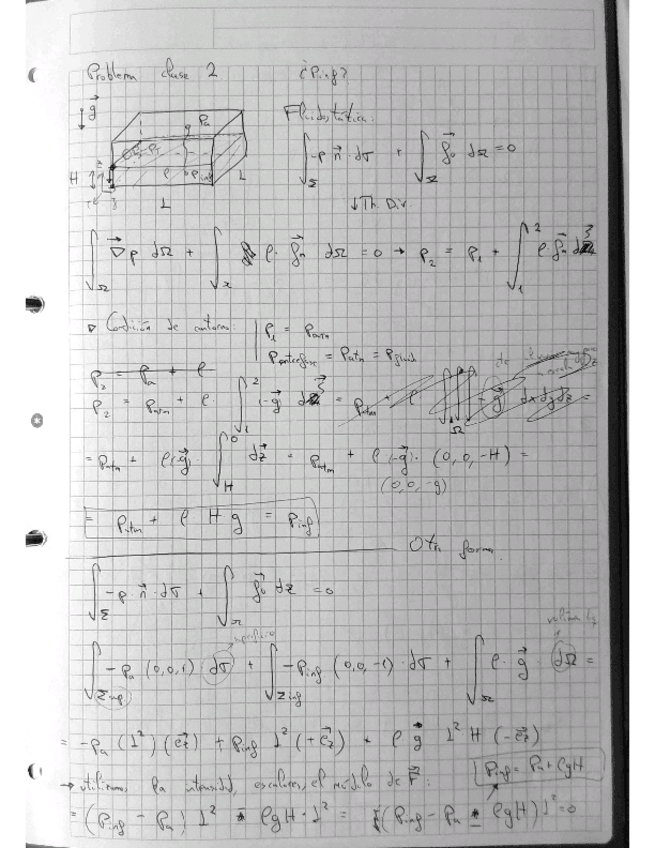 Problema clase 2 ¿Pinf?
g⃗
Pa
Fluidostática:
∫_Σ -p n⃗ · dσ + ∫_Ω f⃗v dΩ = 0
H
ρ Pinf
L L
↓ Th. Div
∫_Ω ∇⃗p dΩ + ∫_Ω ρ · f⃗m dΩ = 0 → P2 = P1 + ∫_1^2 ρ · f⃗m d
Condición de contorno: | P1 = Patm
= Patm = Pfluid
P2 = Pa + ρ
P2 = Patm + ρ · ∫_1^2 (-g⃗) d = Patm + ρ -g⃗ dx dy dz =
= Patm + ρ(-g⃗) · ∫_H^0 dz⃗ = Patm + ρ(-g⃗) · (0,0,-H) =
(0,0,-g)
= Patm + ρ H g = Pinf
Otra forma.
∫_Σ -p · n⃗ · dσ + ∫_Ω f⃗v dΩ = 0
superficie volumen
∫_Σsup -Pa (0,0,1) dσ + ∫_Σinf -Pinf (0,0,-1) · dσ + ∫_Ω ρ · g⃗ · dΩ =
= -Pa (L²)(e⃗z) + Pinf L² (+e⃗z) + ρ g L² H (-e⃗z)
→ utilizamos la intensidad, escalares, el módulo de F⃗: Pinf = Pa + ρgH
= (Pinf - Pa) L² - ρgH · L² = (Pinf - Pa - ρgH) L² = 0